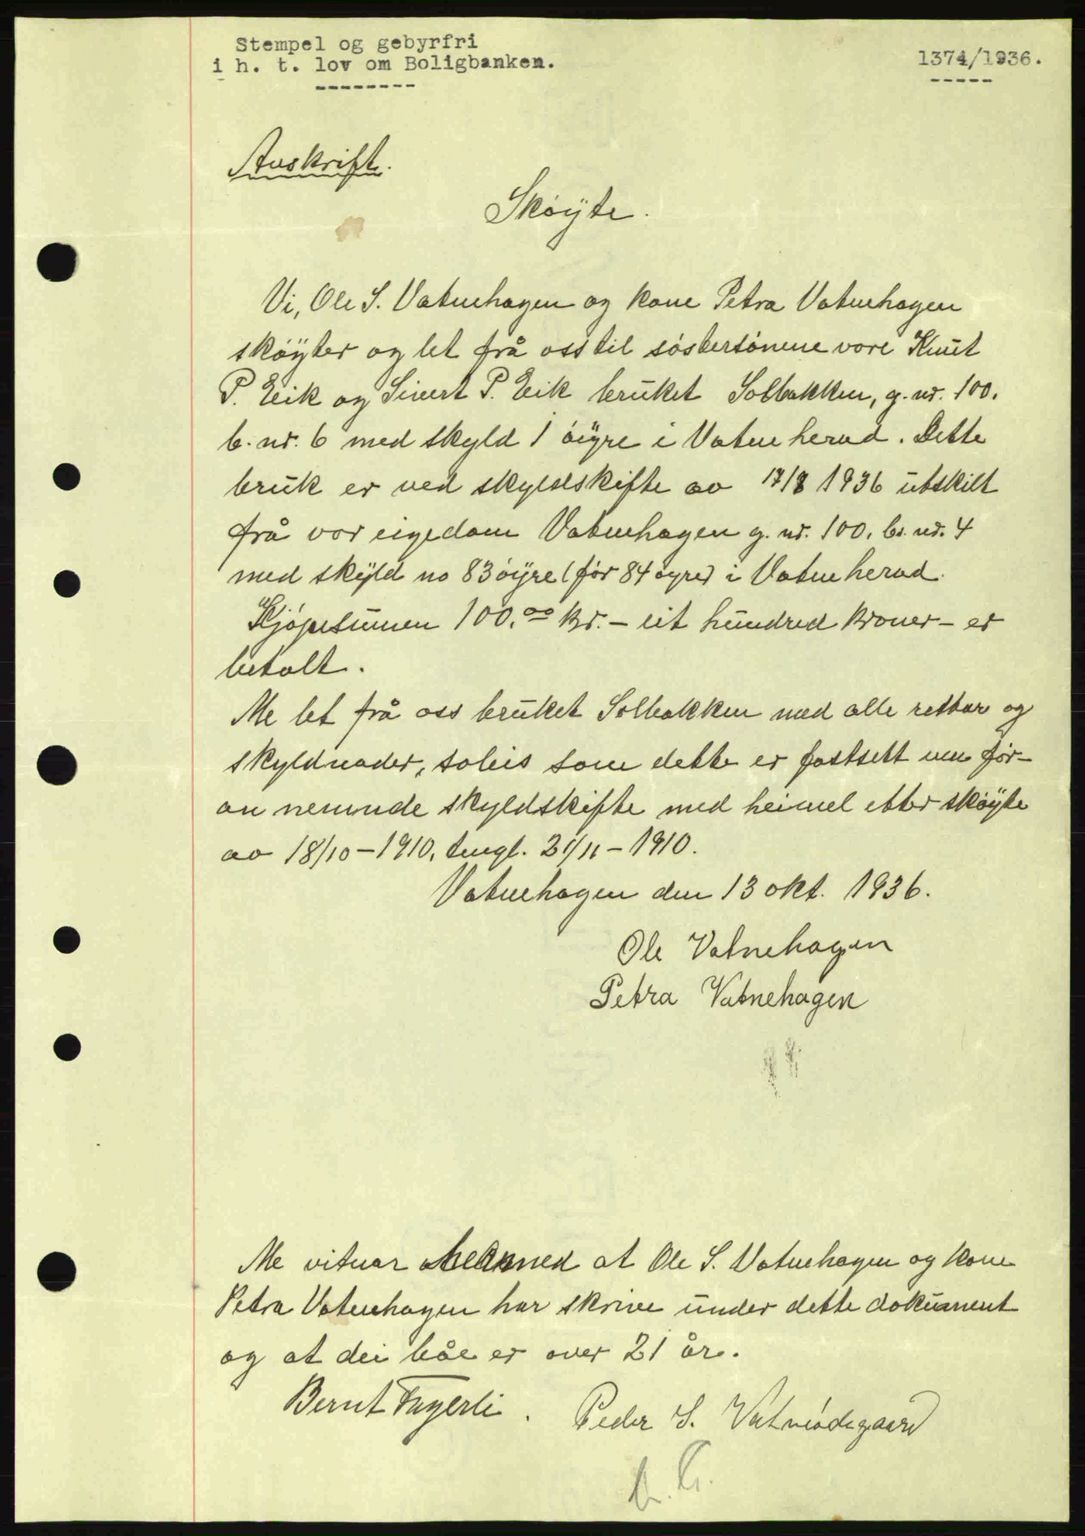 Stempel og gebyrfri
i h. t. lov om Boligbanken.
1374/1936.
Avskrift.
Skøyte.
Vi, Ole S. Vatnehagen og kone Petra Vatnehagen
skøyter og let frå oss til søstersønene vore Knut
P. Eik og Sivert P. Eik bruket Solbakken, g. nr. 100.
b. nr. 6 med skyld 1 øyre i Vatne herad. Dette
bruk er ved skyldskifte av 17/8 1936 utskilt
frå vor eigedom Vatnehagen g. nr. 100. br. nr. 4
med skyld no 83 øyre (før 84 øyre) i Vatne herad.
Kjøpesumen 100.00 kr. – eit hundred kroner – er
betalt.
Me let frå oss bruket Solbakken med alle rettar og
skyldnader, soleis som dette er fastsett um før-
an nemnde skyldskifte med heimel etter skøyte
av 18/10 – 1910, tingl. 21/11 – 1910.
Vatnehagen den 13 okt. 1936.
Ole Vatnehagen
Petra Vatnehagen
Me vitnar med at Ole S. Vatnehagen og kone
Petra Vatnehagen har skrive under dette dokument
og at dei båe er over 21 år.
Bernt Fagerli. Peder S. Vatneødegaard